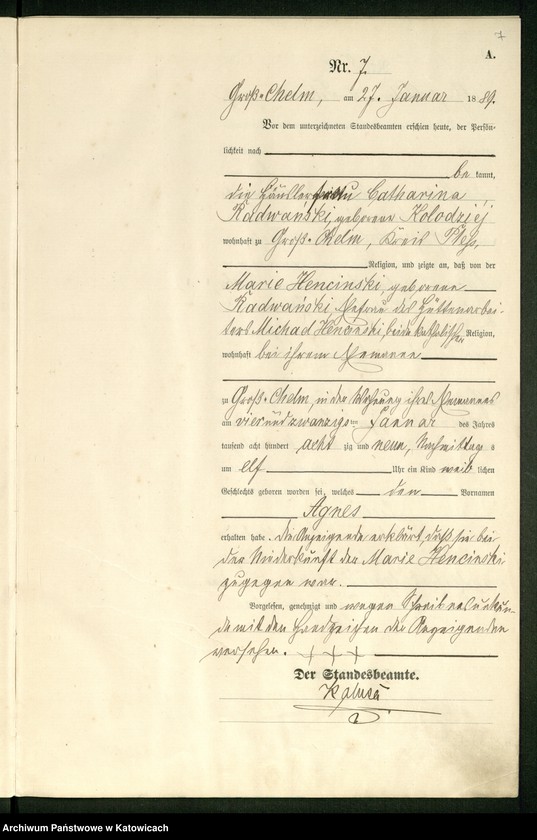 7
A.
Nr. 7.
Groß-Chelm, am 27. Januar 1889.
Vor dem unterzeichneten Standesbeamten erschien heute, der Persön-
lichkeit nach
be kannt,
die Häuslerfrau Catharina
Radwański, geborene Kolodziej
wohnhaft zu Groß-Chelm, Kreis Pleß,
Religion, und zeigte an, daß von der
Marie Hencinski, geborene
Radwański, Ehefrau des Hüttenarbei-
ters Michael Hencinski, beide katholischer Religion,
wohnhaft bei ihrem Ehemanne
zu Groß-Chelm, in der Wohnung ihres Ehemannes
am vierundzwanzigsten Januar des Jahres
tausend acht hundert acht zig und neun, Nachmittags
um elf Uhr ein Kind weib lichen
Geschlechts geboren worden sei, welches den Vornamen
Agnes
erhalten habe. Die Anzeigende erklärt, daß sie bei
der Niederkunft der Marie Hencinski
zugegen war.
Vorgelesen, genehmigt und wegen Schreibensunkun-
de mit den Handzeichen der Anzeigenden
versehen. +++
Der Standesbeamte.
Kalusa
Archiwum Państwowe w Katowicach